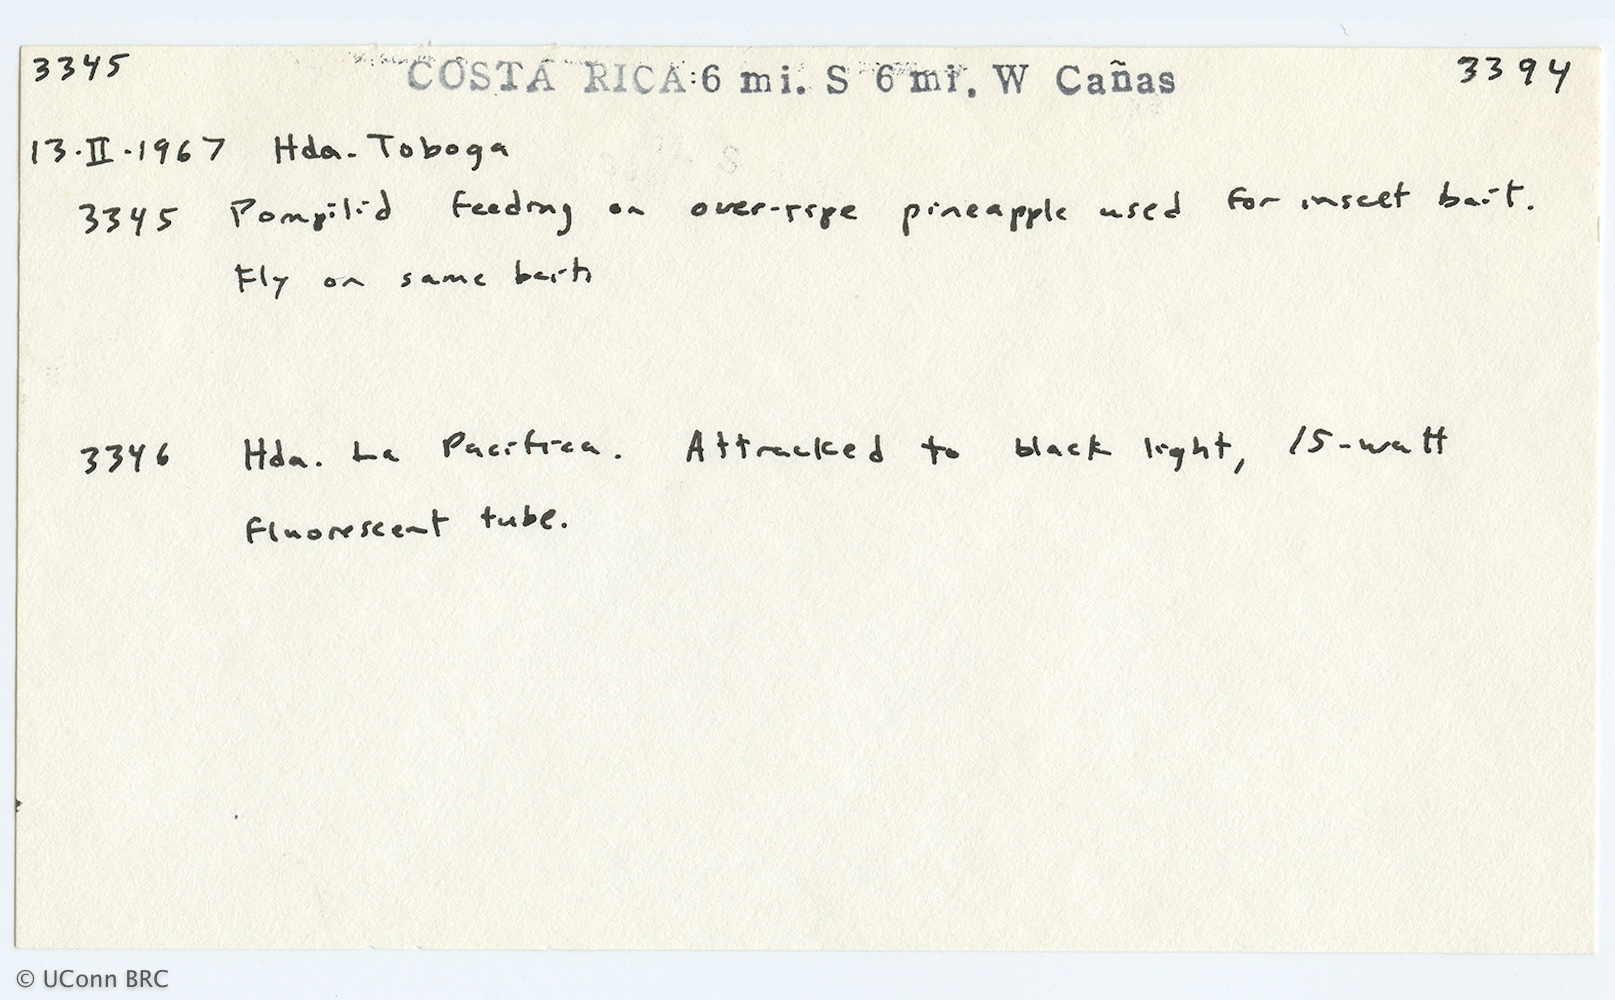 3345 COSTA RICA: 6 mi. S 6 mi. W Cañas 3394
13·II·1967 Hda. Toboga
3345 Pompilid feeding on over-ripe pineapple used for insect bait.
Fly on same bait
3346 Hda. La Pacifica. Attracked to black light, 15-watt
fluorescent tube.
© UConn BRC